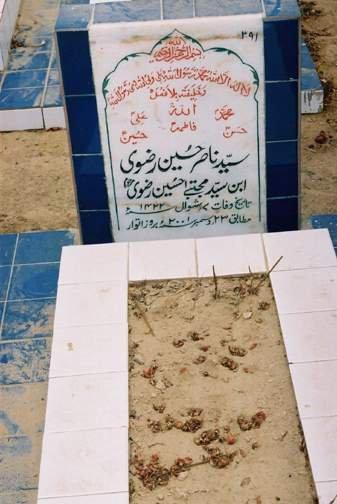 ۲۹۱
الله
بسم الله الرحمن الرحیم
لا اله الا الله محمد رسول الله علی ولی الله وصی رسول الله
وخلیفته بلا فصل
محمد الله علی
حسن فاطمہ حسین
سیّد ناصر حسین رضوی
ابن سیّد مجتبےٰ حسین رضوی
تاریخ وفات ۷ شوال ۱۴۲۲ھ
مطابق ۲۳ دسمبر ۲۰۰۱ء بروز اتوار